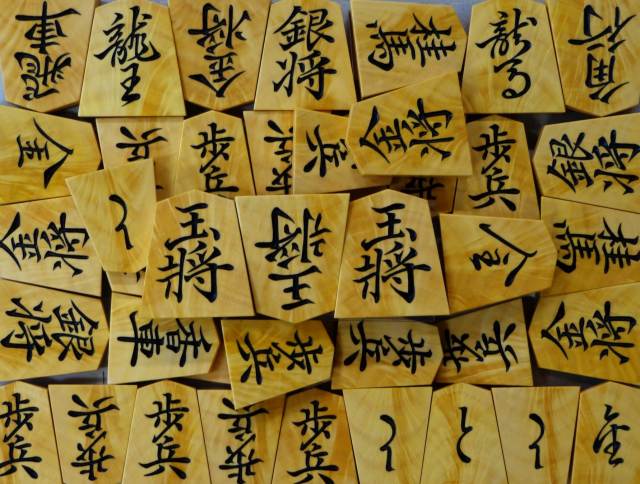 飛車
龍王
金将
銀将
桂馬
龍馬
角行
全
歩兵
歩兵
歩兵
歩兵
金将
歩兵
銀将
金将
と
王将
王将
王将
全
桂馬
銀将
香車
歩兵
歩兵
歩兵
金将
歩兵
歩兵
歩兵
歩兵
歩兵
と
と
と
全